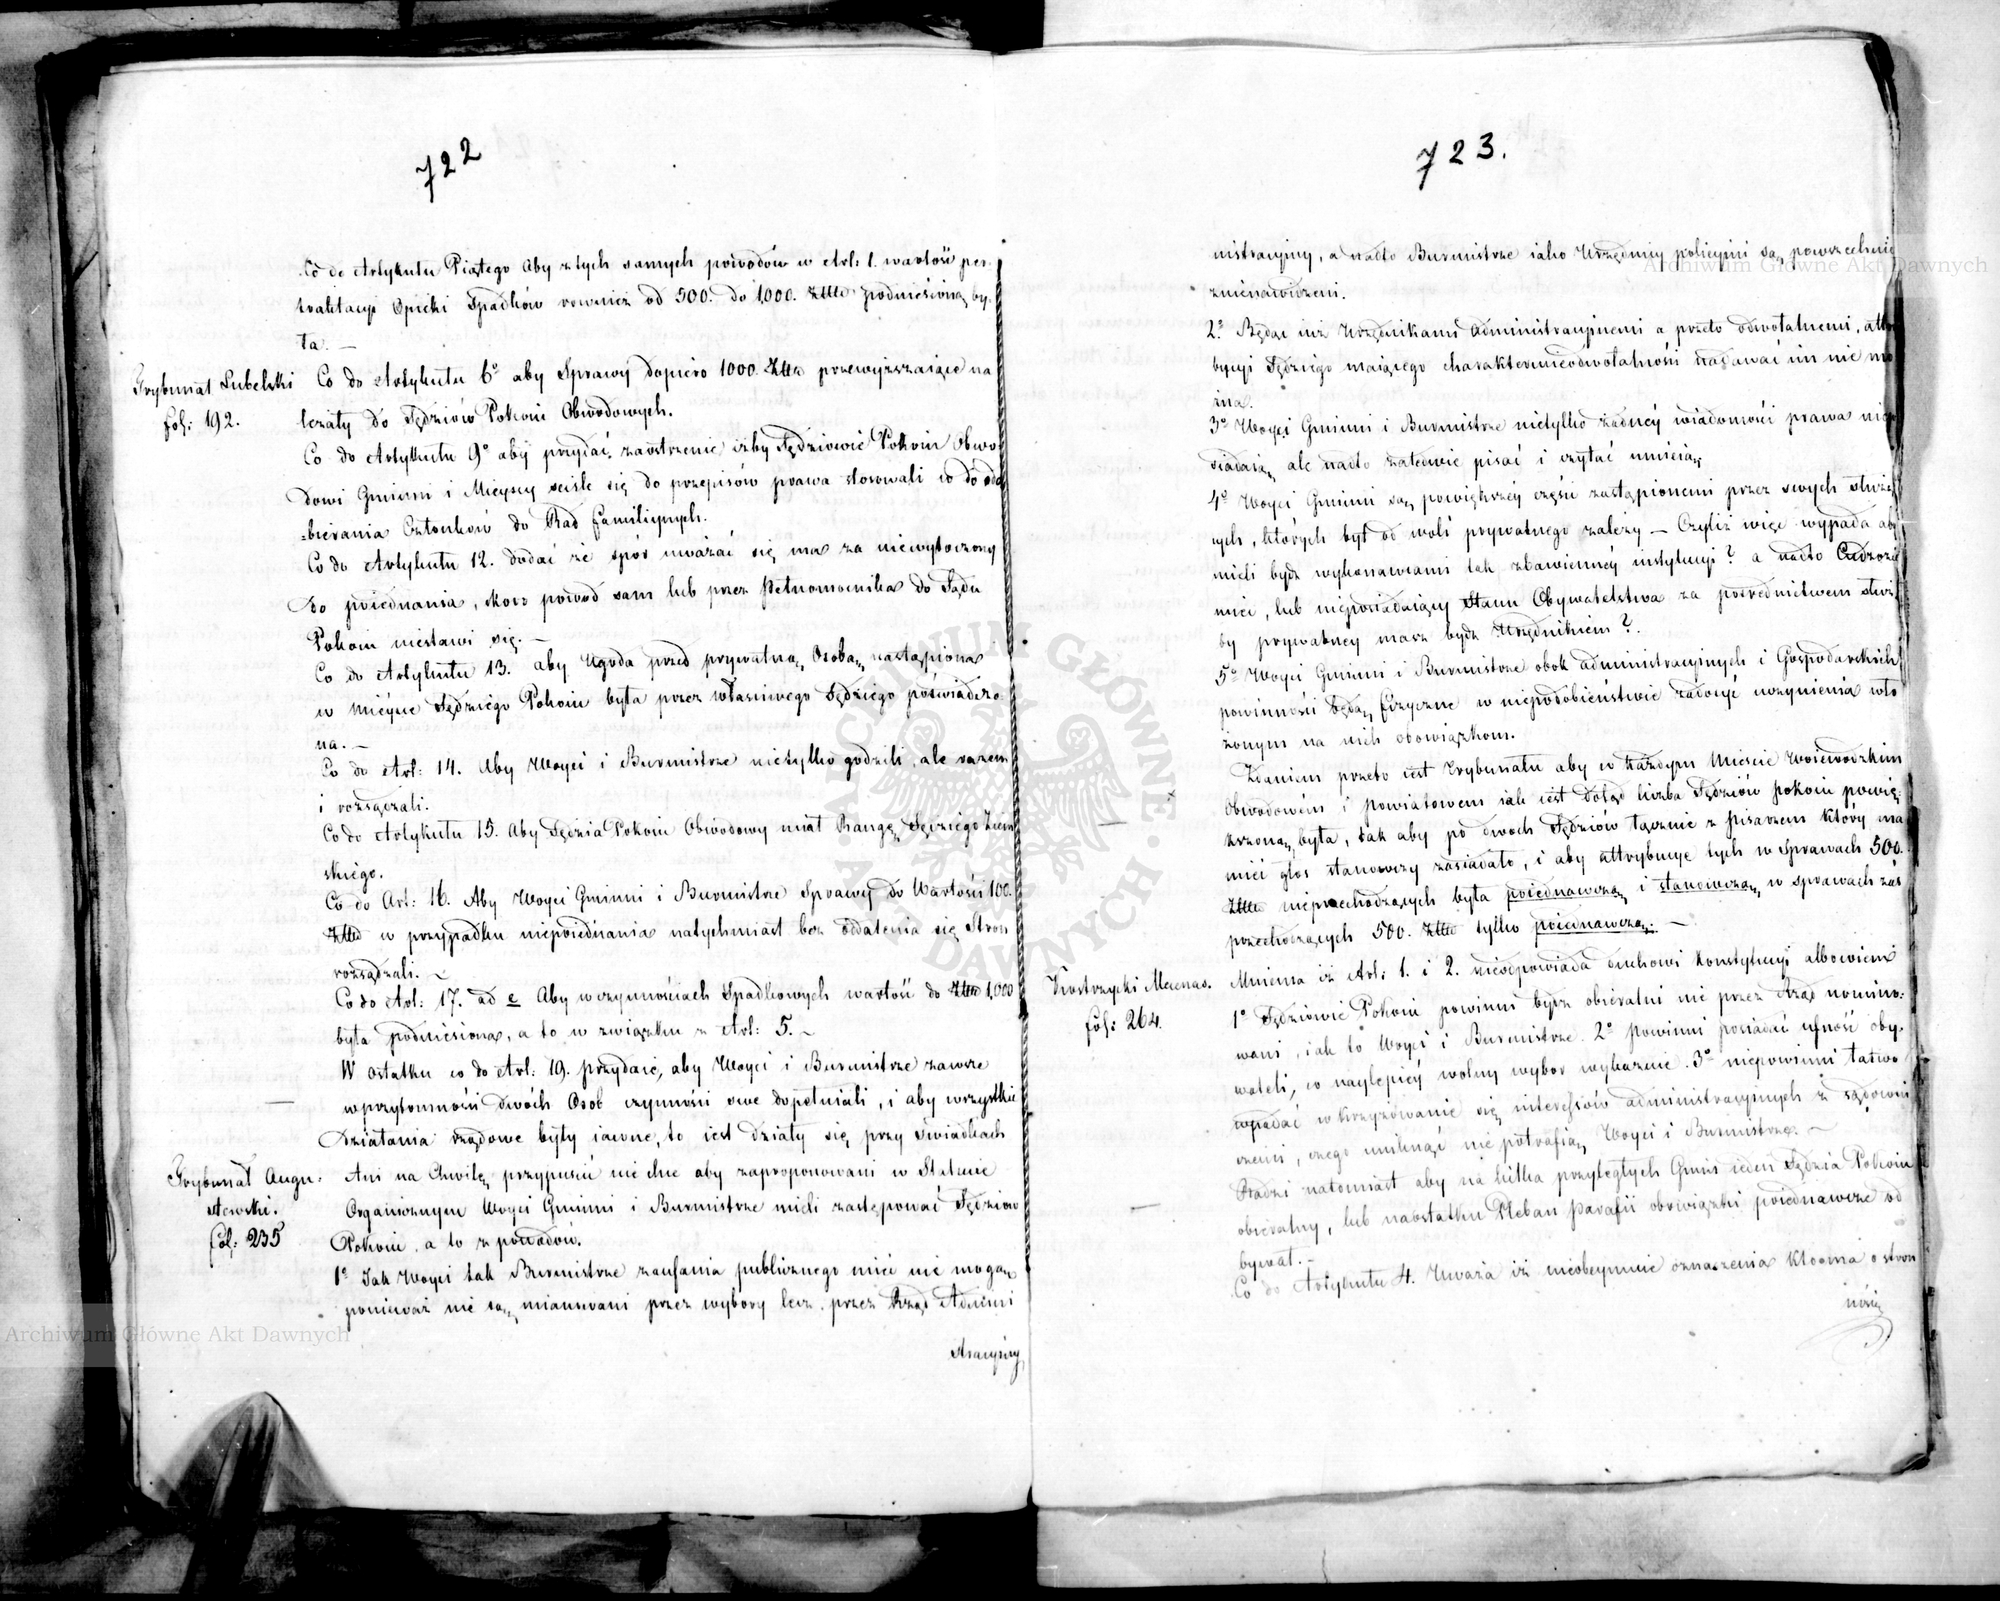 722
Co do Artykułu Piątego Aby z tych samych powodów w Art: 1. wartość per-
traktacyi Opieki Spadków rownież od 500. do 1,000. Złłł podniesioną by-
ła. —
Trybunał Lubelski
fol: 192.
Co do Artykułu 6° aby Sprawy dopiero 1000. Złł przewyższaiące na
leżały do Sędziów Pokoiu Obwodowych.
Co do Artykułu 9° aby przydać zaostrzenie iżby Sędziowie Pokoiu Obwo
dowi Gminni i Mieyscy ściśle się do przepisów prawa stosowali co do od
=bierania Członków do Rad familiynych.
Co do Artykułu 12. dodać że spór uważać się ma za niewytoczony
do poiednania, skoro powod sam lub przez Pełnomocnika do Sądu
Pokoiu niestawi się. —
Co do Artykułu 13. aby Ugoda przed prywatną Osobą nastąpiona
w mieyscu Sędziego Pokoiu była przez właściwego Sędziego poświadczo
na. —
Co do Art: 14. Aby Woyci i Burmistrze nietylko godzili, ale razem
i rozsądzali.
Co do Artykułu 15. Aby Sędzia Pokoiu Obwodowy miał Rangę Sędziego Ziem
skiego.
Co do Art: 16. Aby Woyci Gminni i Burmistrze Sprawy do Wartości 100.
Złł w przypadku niepoiednania natychmiast bez oddalenia się Stron
rozsądzali. ~
Co do Art: 17. ad c Aby w czynnościach Spadkowych wartość do Złł 1,000
była podniesiona, a to w związku z Art: 5. ~
W ostatku co do Art: 19. przydaie, aby Woyci i Burmistrze zawsze
w przytomności dwóch Osob czynności swe dopełniali, i aby wszystkie
Działania rządowe były iawne, to iest działy się przy Świadkach
Trybunał Augu-
stowski.
fol: 235
Ani na Chwilę przypuścić nie chce aby zaproponowani w Statucie
Organicznym Woyci Gminni i Burmistrze mieli zastępować Sędziów
Pokoiu, a to z powodów.
1° Jak Woyci tak Burmistrze zaufania publicznego mieć nie mogą
ponieważ nie są mianowani przez wybory lecz przez Rząd Admini
stracyiny
723.
nistracyiny, a nadto Burmistrze iako Urzędnicy policyini są powszechnie
znienawidzeni.
2° Będąc iuż Urzędnikami administracyinemi a przeto odwołalnemi, attry
bucyi Sędziego maiącego charakter nieodwołalności nadawać im nie mo
żna.
3° Woyci Gminni i Burmistrze nietylko żadney wiadomości prawa niepo
siadaią, ale nadto zaledwie pisać i czytać umieią
4° Woyci Gminni są powiększey części zastąpionemi przez swych służą
cych, których byt od woli prywatnego zależy — Czyliż więc wypada aby
mieli bydź wykonawcami tak zbawienney instytucyi? a nadto Cudzozie
miec, lub nieposiadaiący Stanu Obywatelstwa za pośrednictwem służ
by prywatney masz bydź Urzędnikiem?
5° Woyci Gminni i Burmistrze obok administracyinych i Gospodarskich
powinności będą fizycznie w niepodobieństwie zadosyć uczynienia wło
żonym na nich obowiązkom.
Zdaniem przeto iest Trybunału aby w każdym Mieście Woiewodzkim
Obwodowem i powiatowem iak iest dotąd liczba Sędziów pokoiu powię
kszoną była, tak aby po dwoch Sędziów łącznie z Pisarzem który ma
mieć głos stanowczy zasiadało, i aby attrybucye tych w Sprawach 500.
Złł nieprzechodzących była poiednawczą i stanowczą w sprawach zaś
przechodzących 500. Złł tylko poiednawczą. —
Kostrzycki Mecenas.
fol: 264.
Mniema iż Art: 1. i 2. nieodpowiada duchowi Konstytucyi albowiem
1° Sędziowie Pokoiu powinni bydź obieralni nie przez Rząd nomino-
wani, iak to Woyci i Burmistrze. 2° powinni posiadać ufność oby-
wateli, co naylepiey wolny wybor wykazuie. 3° niepowinni łatwo
wpadać w krzyżowanie się interessów administracyinych z sądowni
czemi, czego uniknąć nie potrafią Woyci i Burmistrze. —
Radzi natomiast aby na kilka przyległych Gmin ieden Sędzia Pokoiu
obieralny, lub naostatku Pleban parafii obowiązki poiednawcze od
bywał. —
Co do Artykułu 4. Uważa iż nieobeymuie oznaczenia Kto ma o stron